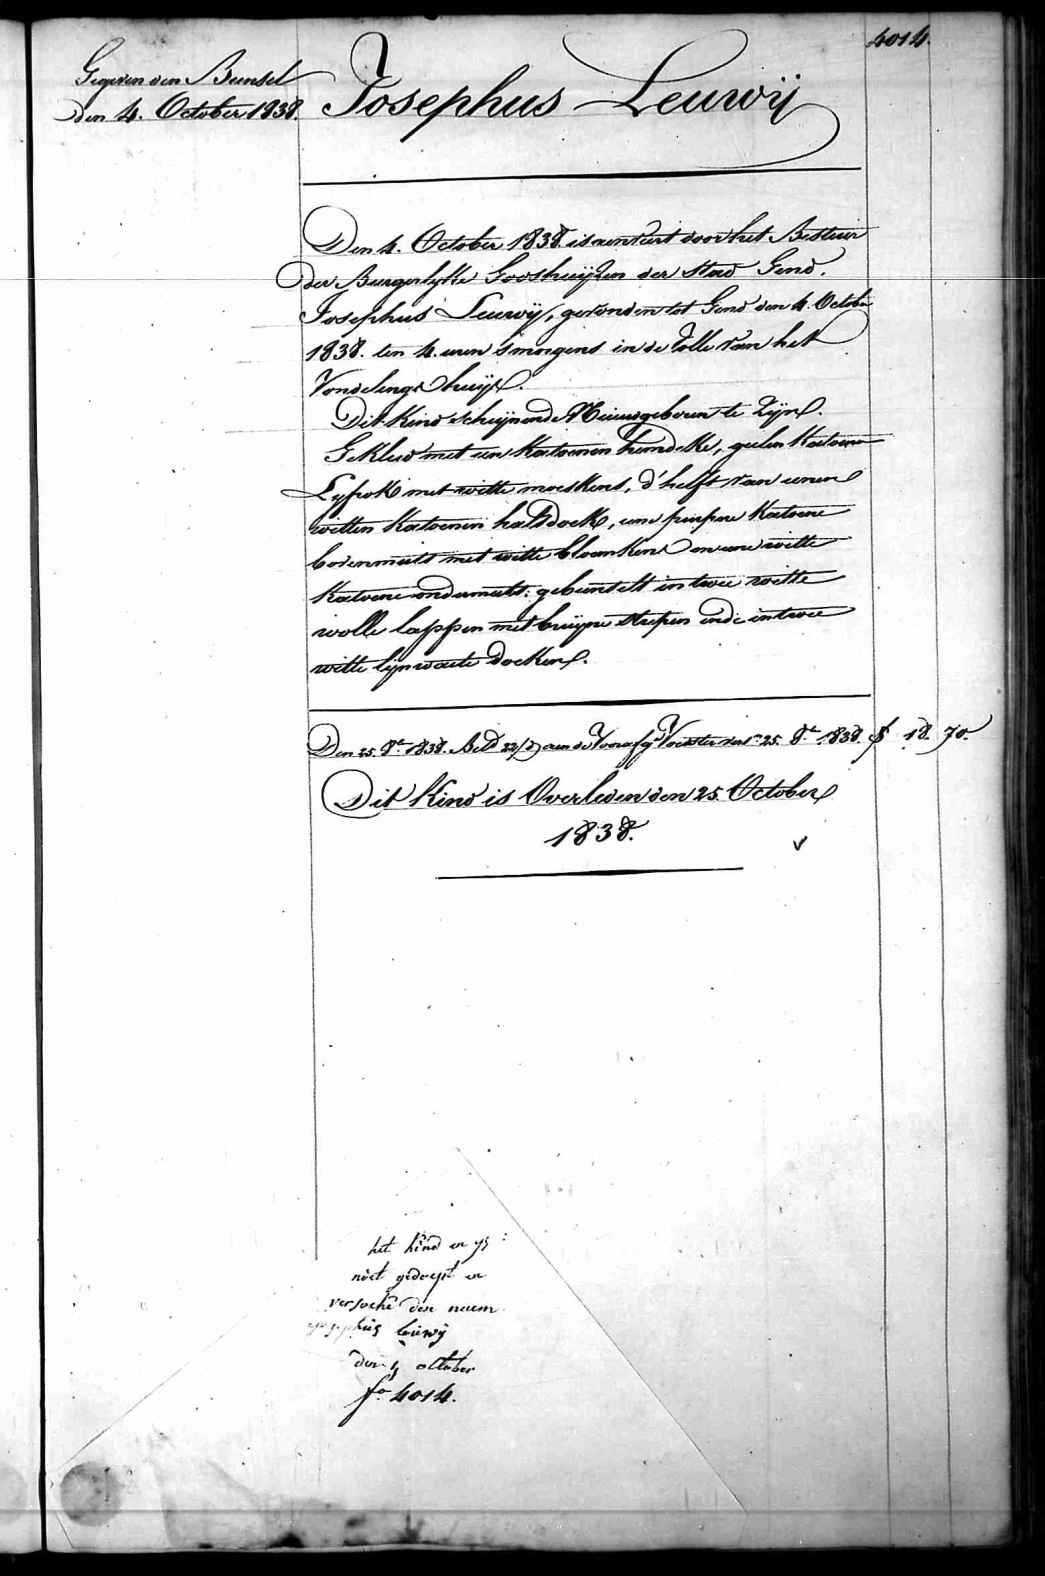 4014.
Gegeven den Bunsel
den 4. October 1838.
Josephus Leuwÿ
Den 4. October 1838. is aenveert door het Bestier
der Burgerlyke Godshuÿzen der Stad Gend.
Josephus Leuwÿ, gevonden tot Gend den 4. October
1838. ten 4. uren s'morgens in de Rolle van het
Vondelingshuijs.
Dit Kind scheijnende Nieuwgeboren te zijn.
Gekleed met een Katoenen hemdeke, geelen Katoenen
Lyfrok met witte moeskens, d'helft van eenen
witten Katoenen halsdoek, eene purpere Katoene
bovenmuts met witte bloemkens en eene witte
Katoene ondermuts: gebunselt in twee witte
wolle lappen met bruijne strepen ende in twee
witte lijnwaete doeken.
Den 25. 8e. 1838. Beld 22/d aen de Voorafg. Voedster 25. 8e. 1838. f 18. 70.
Dit Kind is Overleden den 25 October
1838.
het kind en ys
niet gedoept en
versoeke den naem
yosephus leuwÿ
den 4 october
fo 4014.